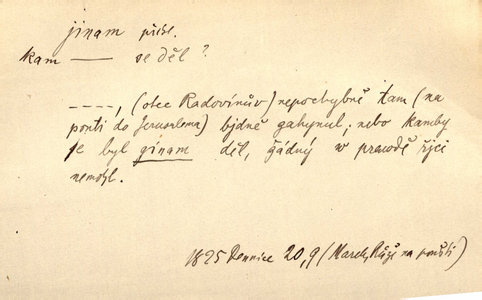 jinam přísl.
kam —— se děl ?
----, (otec Radovínůw) nepochybně tam (na
pouti do Jeruzalema) bjdně zahynul; nebo kamby
se byl ginam děl, žádný w prawdě řjci
nemohl.
1825 Dennice 20,9 (Marek, Růže na poušti)